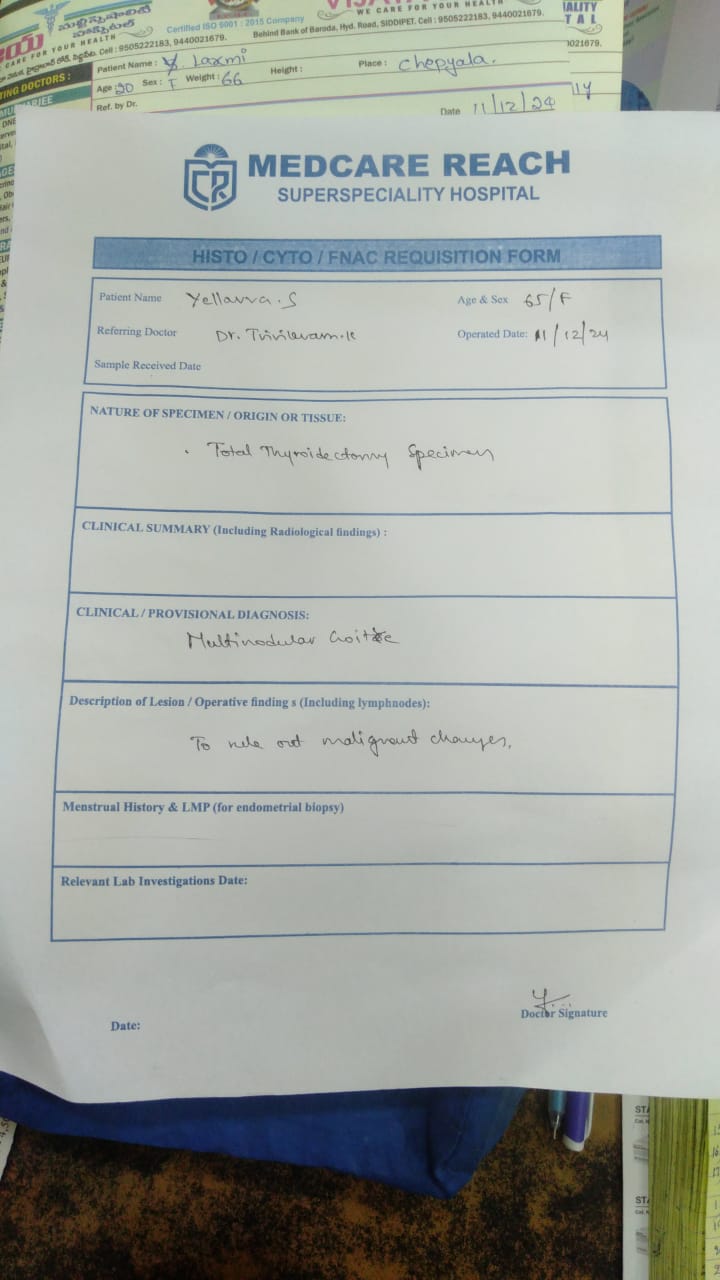 మల్టిస్పెషాలిటీ
హాస్పిటల్
CARE FOR YOUR HEALTH
Certified ISO 9001 : 2015 Company
WE CARE FOR YOUR HEALTH
Behind Bank of Baroda, Hyd. Road, SIDDIPET. Cell : 9505222183, 9440021679.
Cell : 9505222183, 9440021679.
ALITY
TAL
0021679.
TING DOCTORS :
Patient Name : Y. Laxmi
Age 20 Sex : F Weight : 66 Height : Place : Chepyala.
Ref. by Dr.
Date 11/12/24
MEDCARE REACH
SUPERSPECIALITY HOSPITAL
HISTO / CYTO / FNAC REQUISITION FORM
Patient Name Yellavva.S Age & Sex 65/F
Referring Doctor Operated Date: 11/12/24
Sample Received Date
NATURE OF SPECIMEN / ORIGIN OR TISSUE:
. Total Thyroidectomy Specimen
CLINICAL SUMMARY (Including Radiological findings) :
CLINICAL / PROVISIONAL DIAGNOSIS:
Multinodular Goitre
Description of Lesion / Operative finding s (Including lymphnodes):
To rule out malignant changes.
Menstrual History & LMP (for endometrial biopsy)
Relevant Lab Investigations Date:
Date:
Doctor Signature